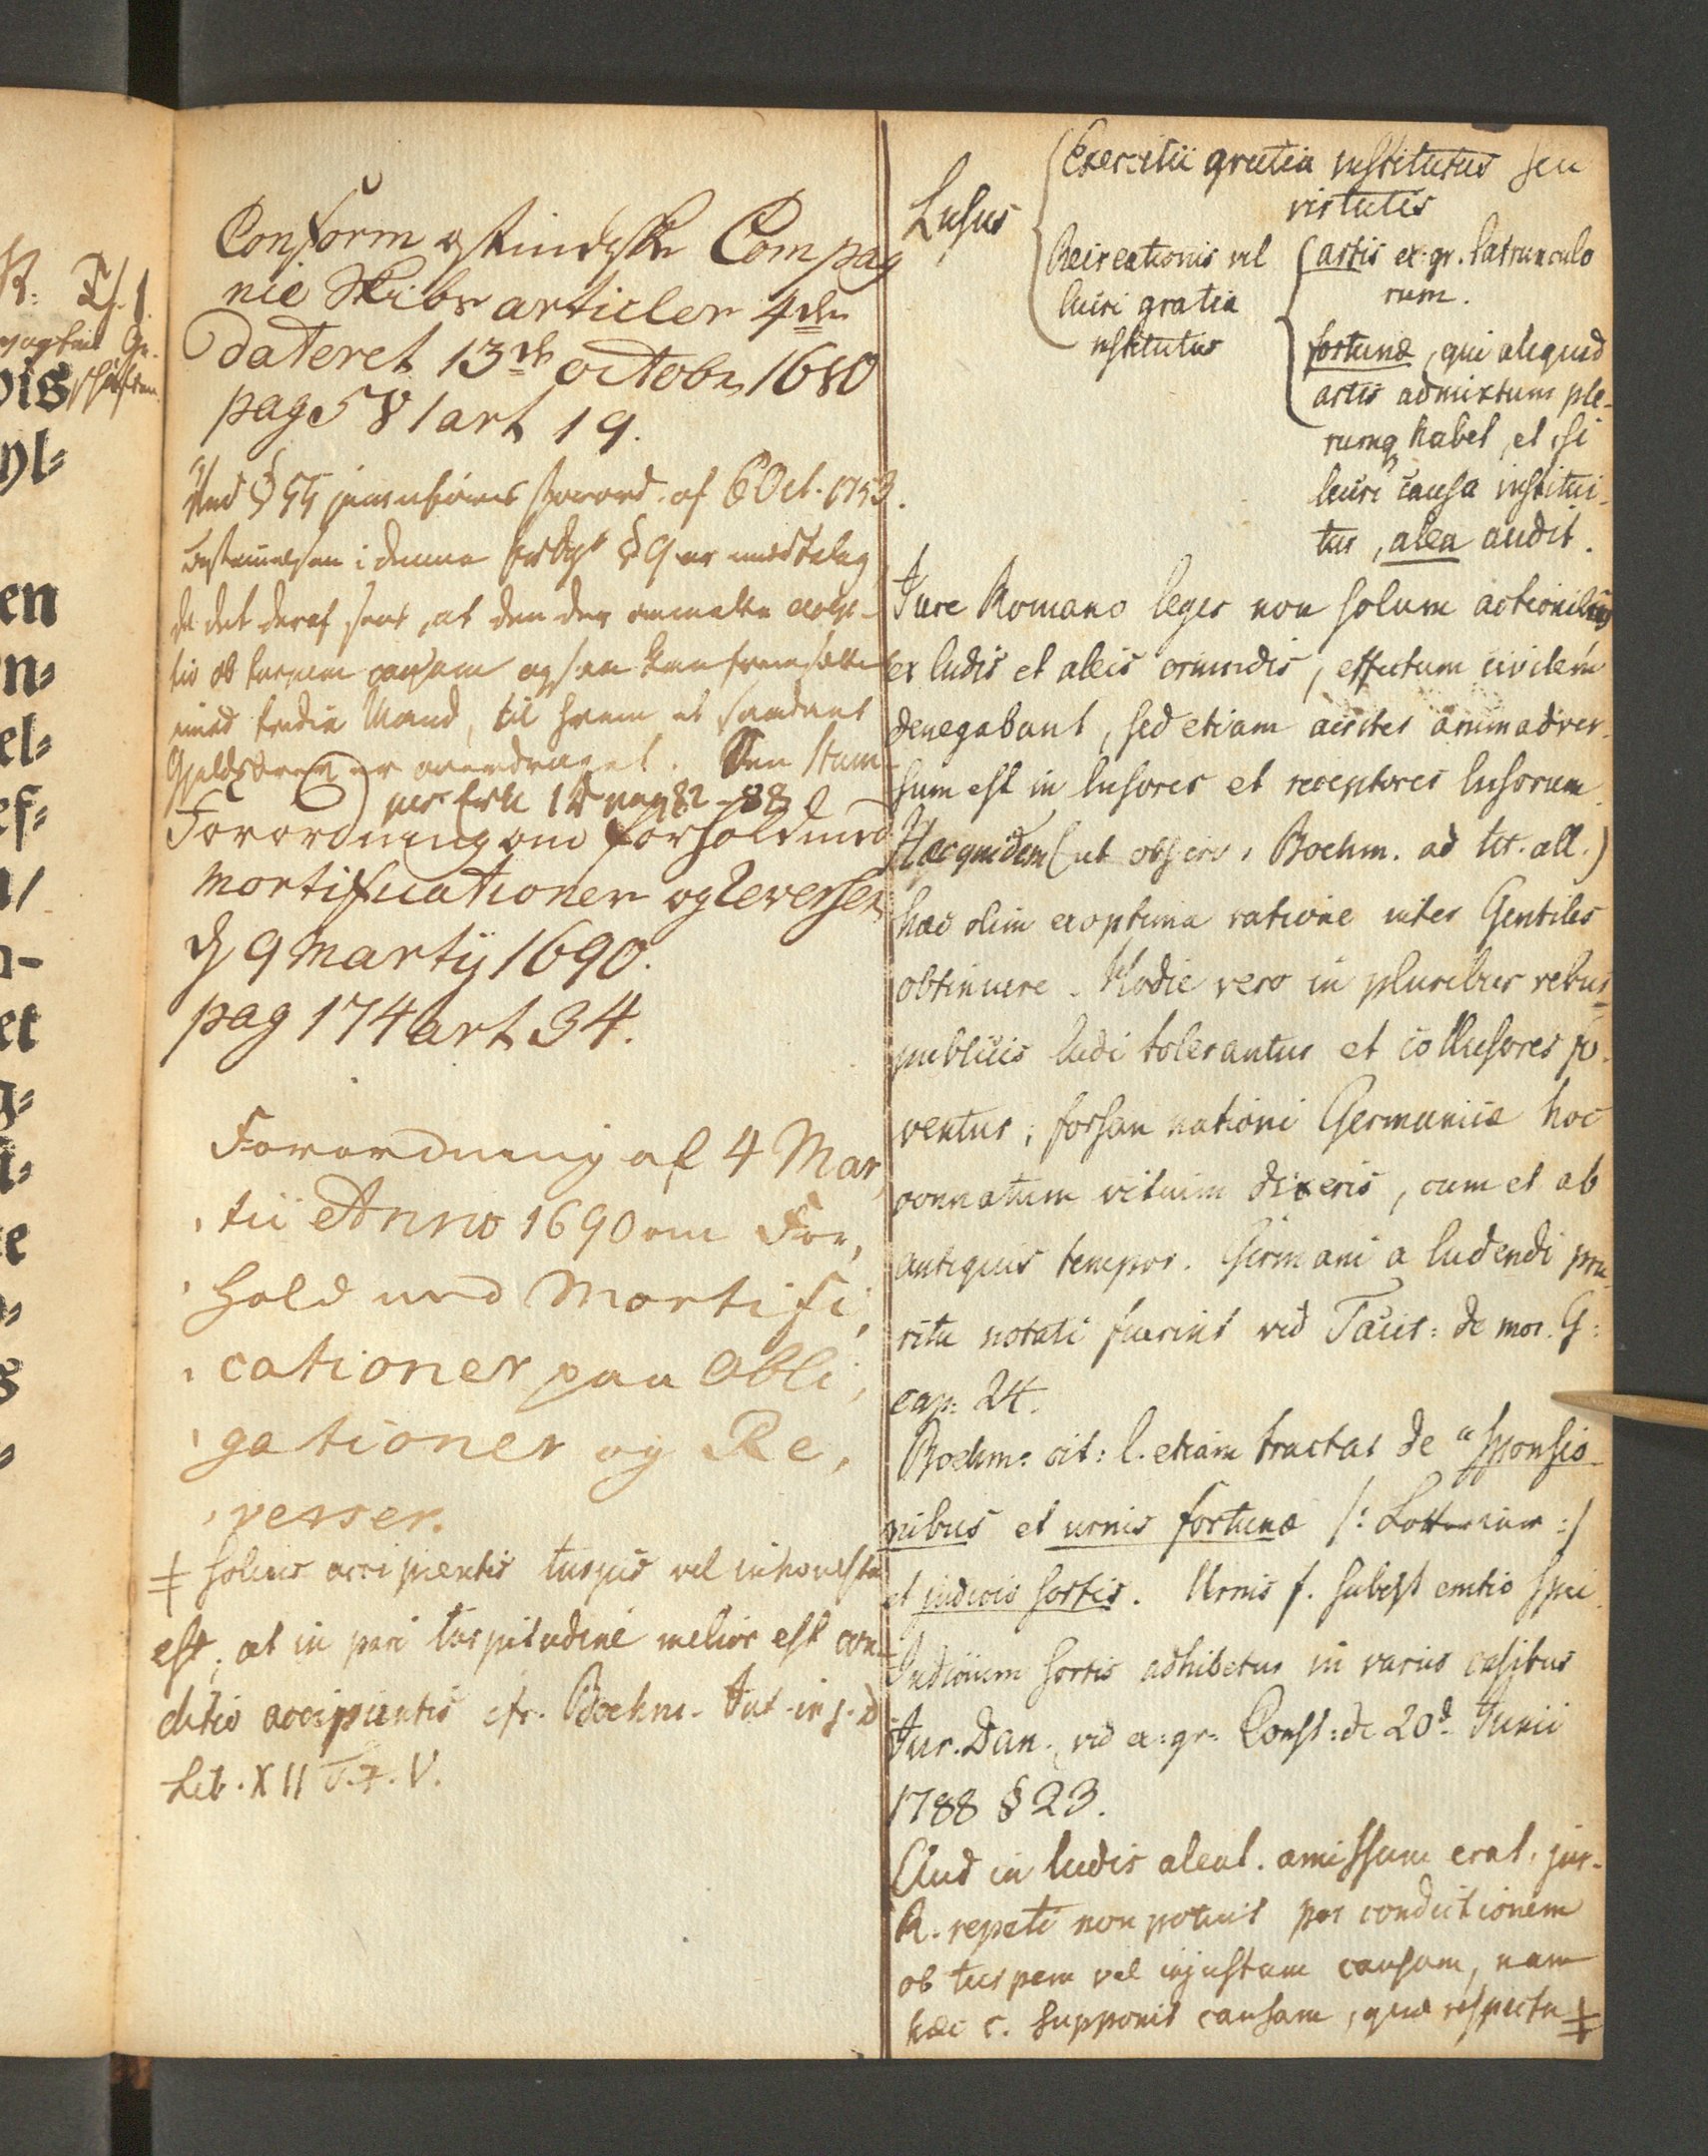 Conform ostindiske Compag
nie Skibs articler 4de
dateret 13de octobr 1680
pag 581 art 19.
Ved § 55 jevnføres Forord. af 6 Oct. 1753.
Bestemmelsen i denne § 9 er
da det deraf , at den der
tio ob turpem causam ogsaa kan fremsættes
mod tredie Mand, til hvem et saadant
Gjeldsbrev er overdraget.
pag 82-88
Forordning om forhold med
Mortificationer og Reverser
d 9 Martij 1690.
pag 174 art 34.
Forordning af 4 Mar,
tii Anno 1690 om For,
hold med Mortifi,
cationer paa Obli,
gationer og Re,
verser.
‡ solius accipientis turpis vel inhonesta
est; at in pari turpitudine melior est con-
ditio accipientis cfr. Boehm.
Lib. XII T. V.
Lusus
Exercitii gratia institutus seu
virtutis
Recreationis vel
lucri gratia
institutus
artis ex: gr. latrunculo
rum.
fortunæ, qui aliquid
artis admixtum ple-
rumq habet, et, si
lucri causa institui-
tur, alea audit.
Jure Romano leges non solum actionibus
ex ludis et aleis oriundis, effectum civilem
denegabant, sed etiam acriter animadver-
sum est in lusores et receptores lusorum.
Hæc quidem (ut observ. Boehm. ad tit. all.)
hæc olim ex optima ratione inter Gentiles
obtinuere. Hodie vero in pluribus rebus-
publicis ludi tolerantur et collusores fo-
ventur; forsan nationi Germanicæ hoc
connatum vitium dixeris, cum et ab
antiquis tempor. Germani a ludendi pru-
ritu notati fuerint vid Tacit: de mor. G:
cap: 24.
Boehm: cit: l. etiam tractat de "sponsio-
nibus et urnis fortunæ /: Lotterier :/
et judiciis sortis. Urnis f. subest emtio spei.
Judicium sortis adhibetur in variis casibus
Jur. Dan. vid ex: gr: Const: de 20d Junii
1788 § 23.
Qvod in ludis aleat. amissum erat, jur.
R. repeti non potuit per condictionem
ob turpem vel injustam causam, nam
hæc c. supponit causam, quæ respectu ‡